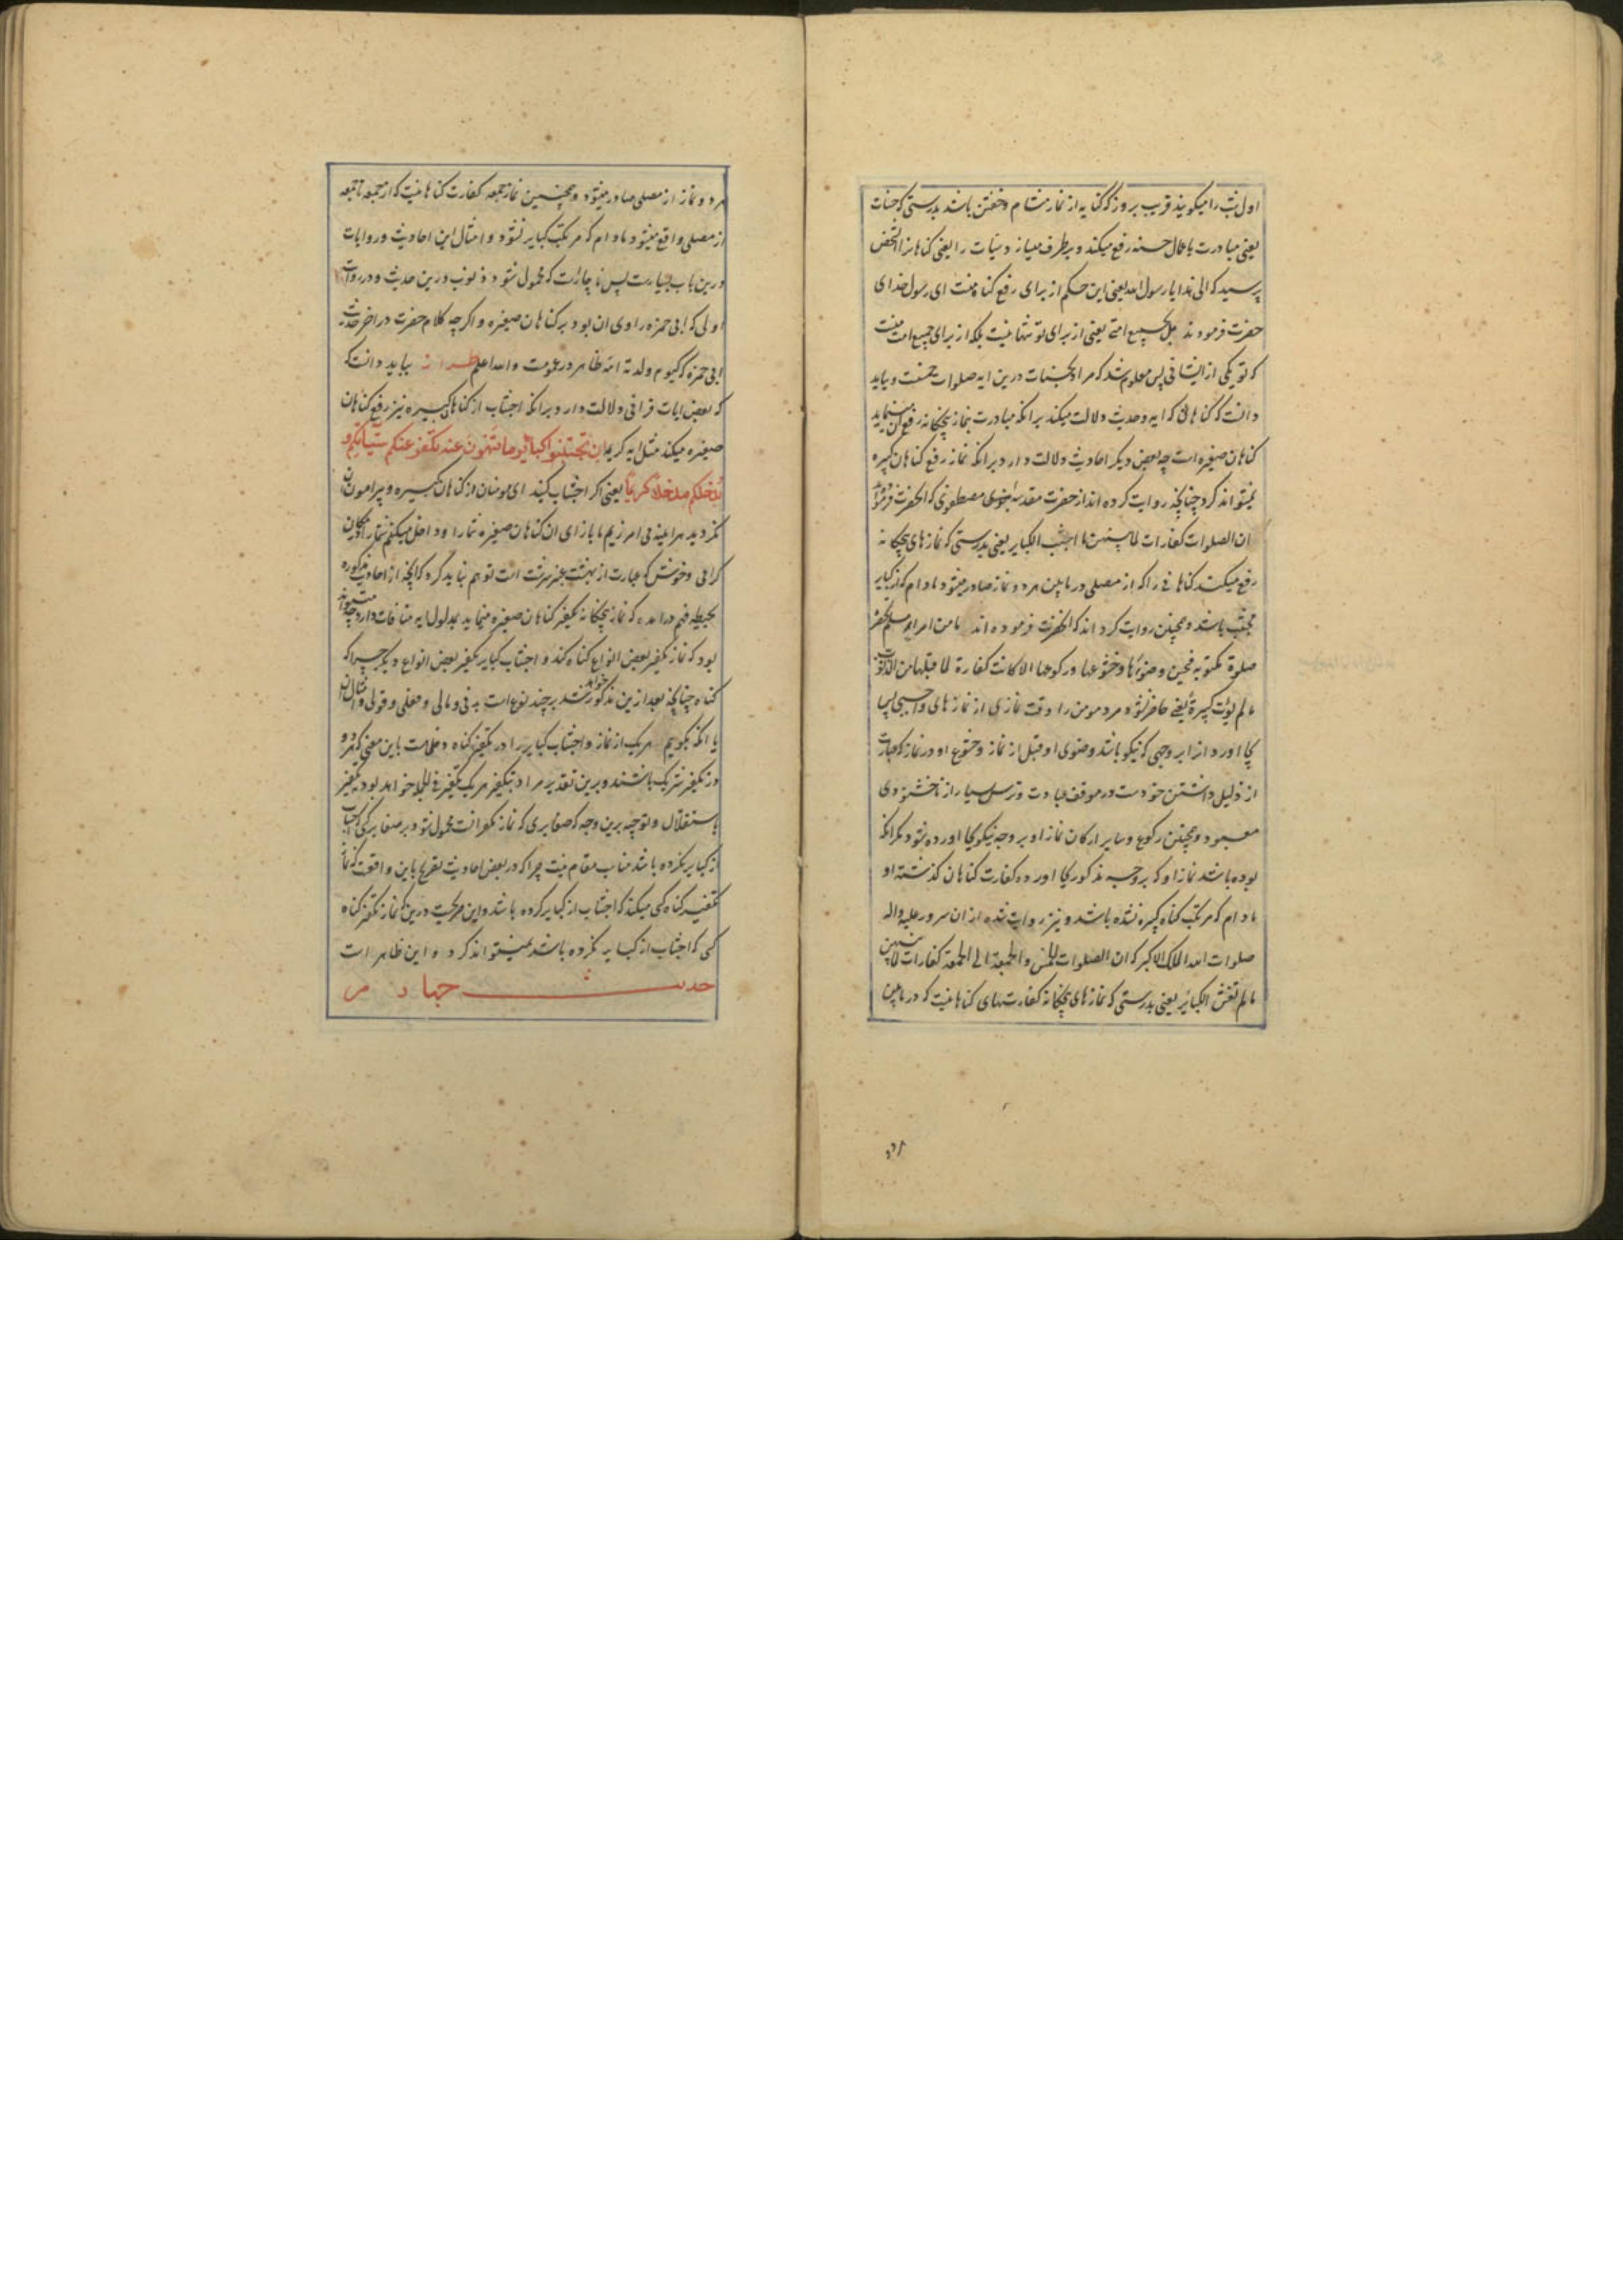 اول شب را میکویند قریب بروز که کنایه از نماز شام و خفتن باشد بدرستی که حسنات
یعنی مبادرت باعمال حسنه رفع میکند و برطرف میسازد سیات را یعنی کناهانرا انشخص
پرسید که الی هذا یا رسول الله یعنی این حکم از برای رفع کناه منست ای رسول خدای
حضرت فرمودند بل لجمیع امتی یعنی از برای تو تنها نیست بلکه از برای جمیع امت منست
که تو یکی از ایشانی پس معلوم شد که مراد بحسنات درین ایه صلوات خمست و باید
دانست که کناهانی که ایه و حدیث دلالت میکند بر انکه مبادرت بنماز پنجکانه رفع ان مینماید
کناهان صغیره است چه بعض دیکر احادیث دلالت دارد بر انکه نماز رفع کناهان کبیره
نمیتواند کرد چنانچه روایت کرده اند از حضرت مقدسه مصطفوی که انحضرت فرمودند
ان الصلوات کفارات لما بینهن ما اجتنب الکبایر یعنی بدرستی که نمازهای پنجکانه
رفع میکنند کناهانی را که از مصلی در مابین هر دو نماز صادر میشود مادام که از کبایر
مجتنب باشد و همچنین روایت کرده اند که انحضرت فرموده اند ما من امرء مسلم تحضره
صلوة مکتوبة فیحسن وضوءها و خشوعها و رکوعها الا کانت کفارة لما قبلها من الذنوب
ما لم یؤت کبیرة یعنی حاضر نشود مرد مومن را وقت نمازی از نمازهای واجبی پس
بجا اورد انرا بر وجهی که نیکو باشد وضوی او قبل از نماز و خشوع او در نماز که عبارت
از ذلیل داشتن خودست در موقف عبادت و ترس بسیار از ناخشنودی
معبود و همچنین رکوع و سایر ارکان نماز او بر وجه نیکو بجا اورده شود مکر انکه
بوده باشد نماز او که بر وجه مذکور بجا اورده کفارت کناهان کذشته او
مادام که مرتکب کناه کبیره نشده باشد و نیز روایت شده از ان سرور علیه و اله
صلوات الله الملک الاکبر که ان الصلوات الخمس و الجمعة الی الجمعة کفارات لما بینهن
ما لم تغش الکبائر یعنی بدرستی که نمازهای پنجکانه کفارتهای کناهانیست که در مابین
هر دو نماز از مصلی صادر میشود و همچنین نماز جمعه کفارت کناهانیست که از جمعه تا جمعه
از مصلی واقع میشود مادام که مرتکب کبایر نشود و امثال این احادیث و روایات
درین باب بسیارست پس ناچارست که محمول شود ذنوب درین حدیث و در روایت
اولی که ابی حمزه راوی ان بود بر کناهان صغیره و اکرچه کلام حضرت در اخر حدیث
ابی حمزه که کیوم ولدته امه ظاهر در عمومست والله اعلم طراز بباید دانست که
که بعض ایات قرانی دلالت دارد بر انکه اجتناب از کناهان کبیره نیز رفع کناهان
صغیره میکند مثل ایه کریمه ان تجتنبوا کبائر ما تنهون عنه نکفر عنکم سیئاتکم و
ندخلکم مدخلا کریما یعنی اکر اجتناب کنید ای مومنان از کناهان کبیره و پیرامون ان
نکردید هراینه می امرزیم ما بازای ان کناهان صغیره شما را و داخل میکنیم شما را در مکان
کرامی و خوش که عبارت از بهشت عنبر سرشت است توهم نباید کرد که انچه از احادیث مذکوره
بحیطه فهم درامده که نماز پنجکانه تکفیر کناهان صغیره مینماید بمدلول ایه منافات دارد چه میتواند
بود که نماز تکفیر بعض انواع کناه کند و اجتناب کبایر تکفیر بعض انواع دیکر چرا که
کناه چنانچه بعد ازین مذکور خواهد شد بر چند نوع است بدنی و مالی و فعلی و قولی و امثال ان
یا انکه بکوییم هر یک از نماز و اجتناب کبایر را در تکفیر کناه دخلست باین معنی که هر دو
در تکفیر شریک باشند و برین تقدیر مراد بتکفیر هر یک تکفیر فی الجمله خواهد بود نه تکفیر
باستقلال و توجیه برین وجه که صغایری که نماز مکفر انست محمول شود بر صغایر کسی که اجتناب
از کبایر نکرده باشد مناسب مقام نیست چرا که در بعض احادیث تصریح باین واقعست که نماز
تکفیر کناه کسی میکند که اجتناب از کبایر کرده باشد و این صریحست درین که نماز تکفیر کناه
کسی که اجتناب از کبایر نکرده باشد نمیتواند کرد و این ظاهر است
حدیث چهارم